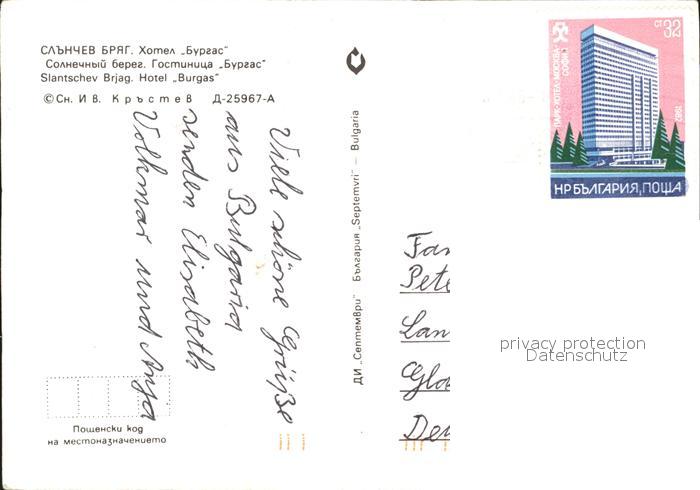 СЛЪНЧЕВ БРЯГ. Хотел „Бургас"
Солнечный берег. Гостиница „Бургас"
Slantschev Brjag. Hotel „Burgas"
© Сн. Ив. Кръстев Д-25967-А
Viele schöne Grüße
aus Bulgarien
senden Elisabeth
Volkmar und Anja
Пощенски код
на местоназначението
ДИ „Септември" България „Septemvri" — Bulgaria
ст 32
ПАРК-ХОТЕЛ-МОСКВА-
СОФИЯ
1982
НР БЪЛГАРИЯ, ПОЩА
Fam
Pete
Lan
Gla
privacy protection
Datenschutz